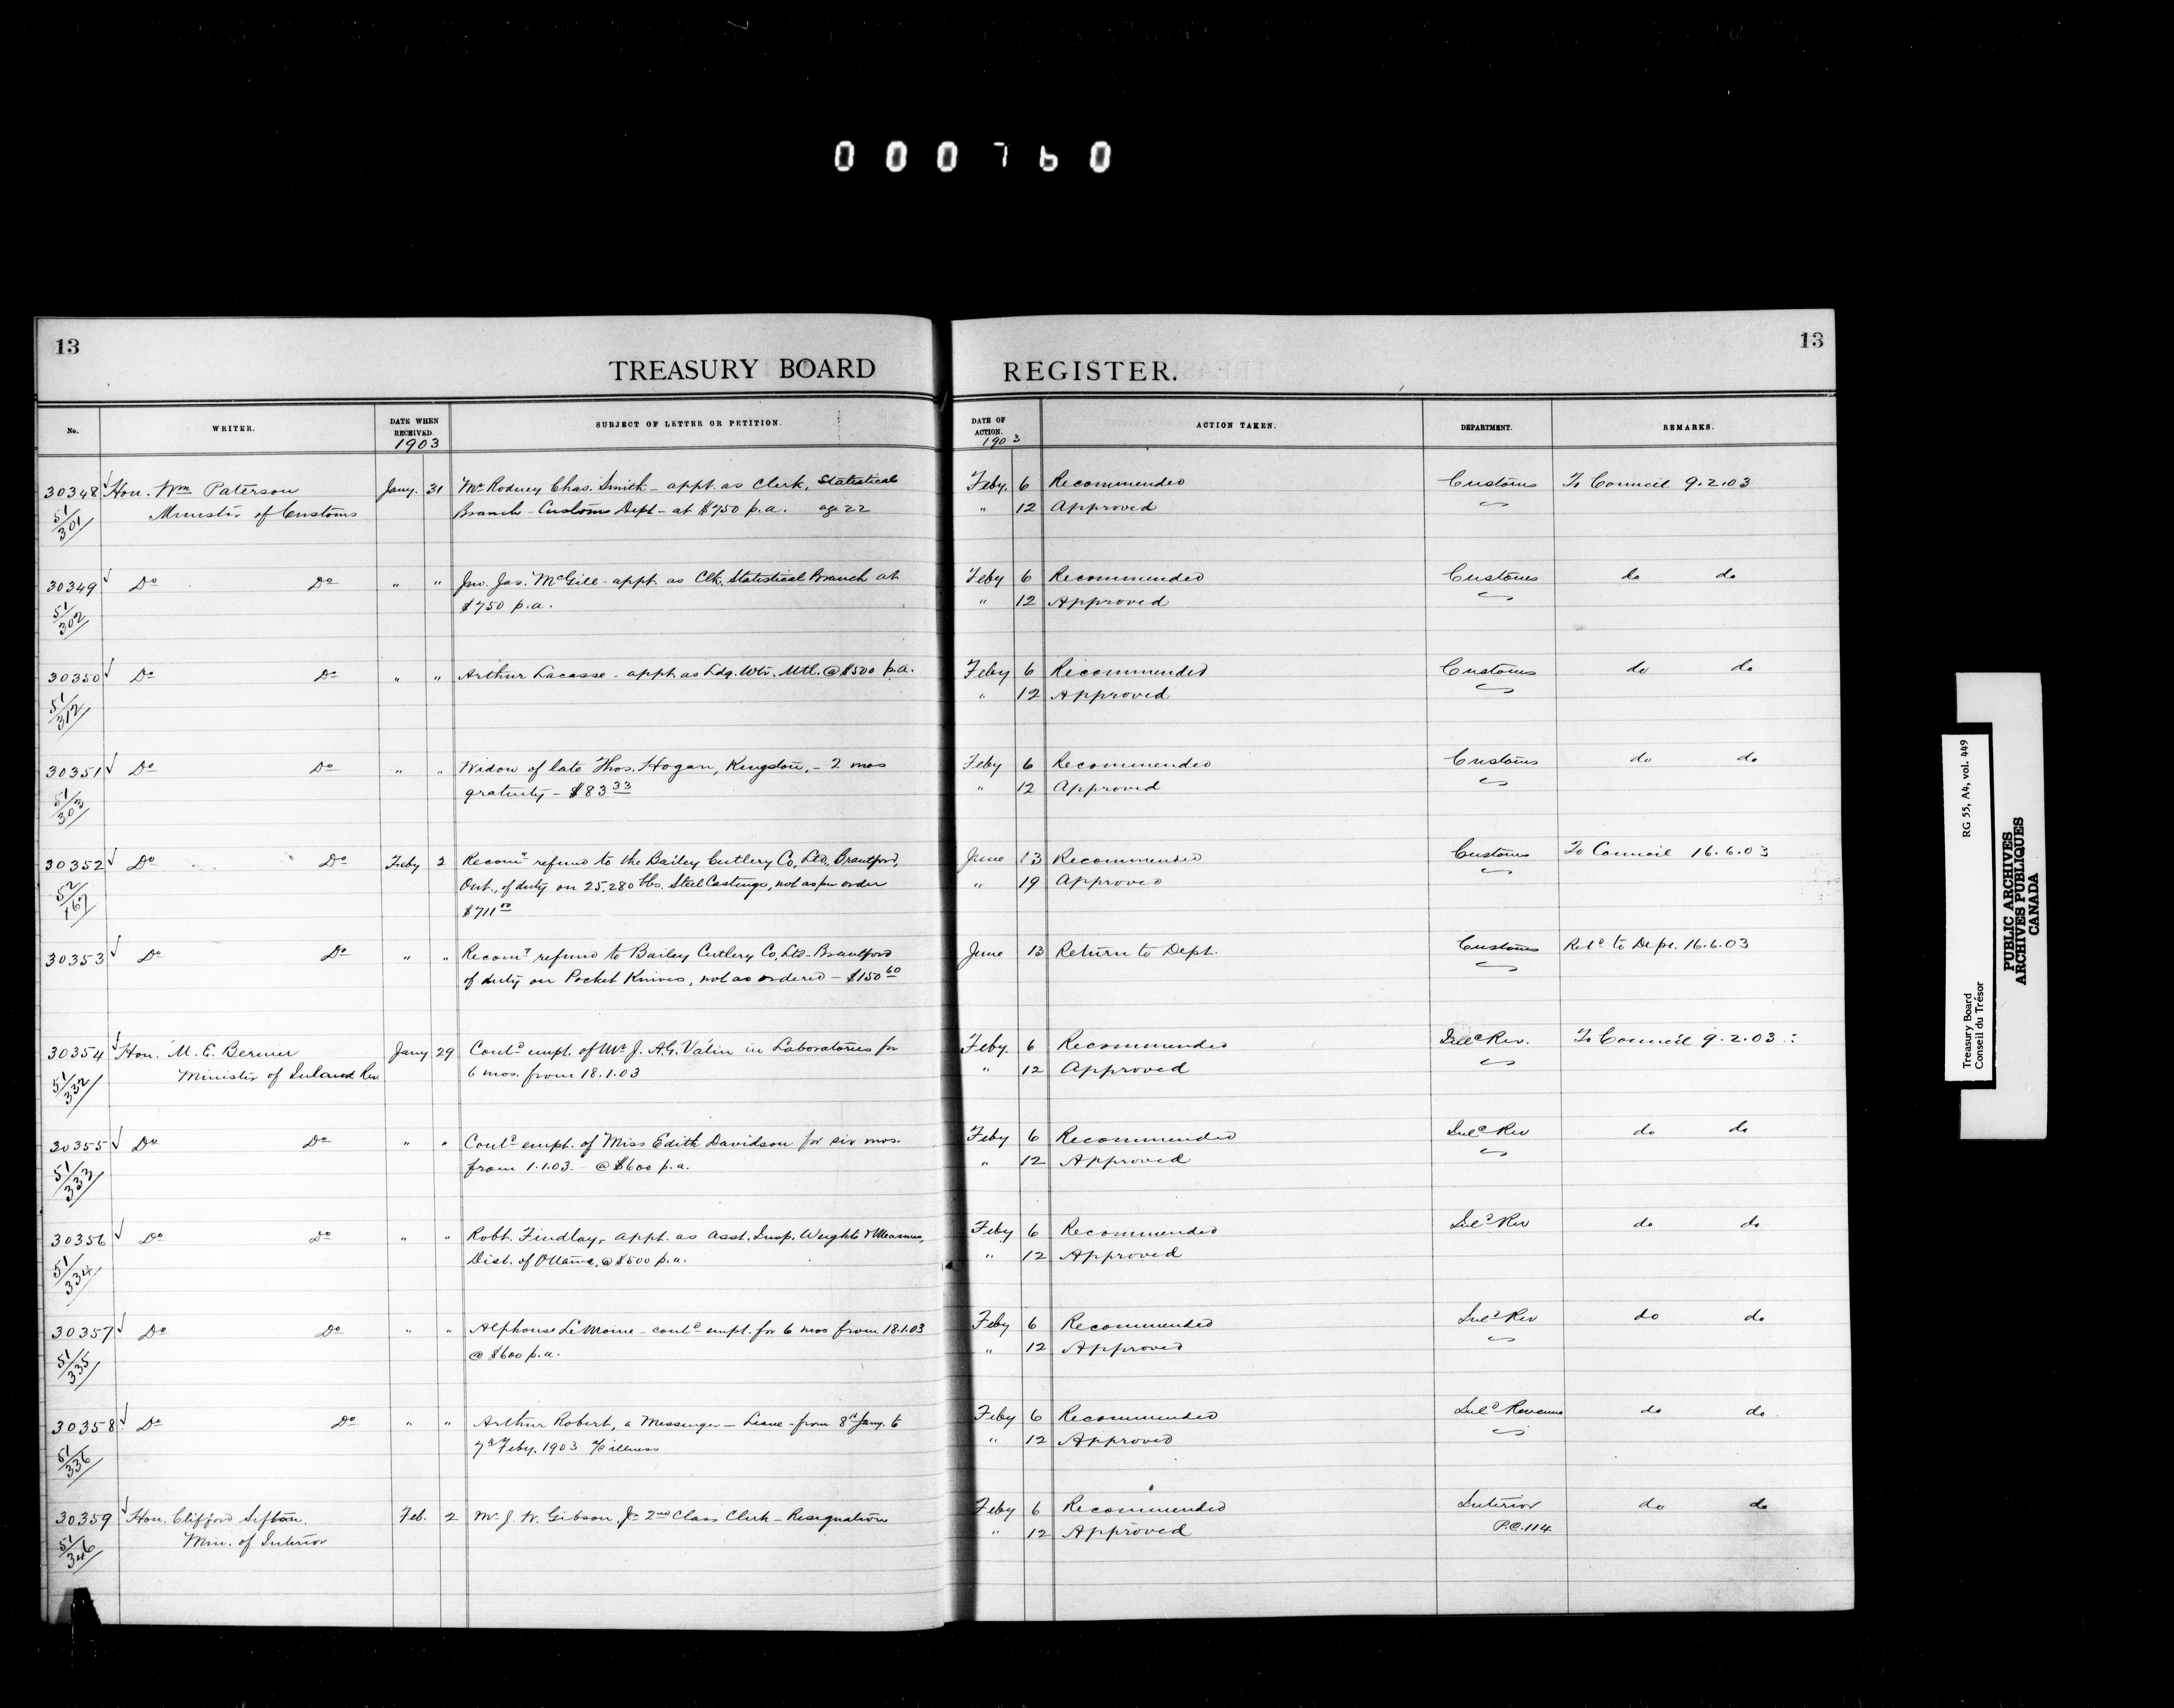 000760
13
TREASURY BOARD
REGISTER.
13
No.
WRITER.
DATE WHEN RECEIVED.
1903
SUBJECT OF LETTER OR PETITION.
DATE OF ACTION.
1903
ACTION TAKEN.
DEPARTMENT.
REMARKS.
30348 Hon. Wm Paterson Jany. 31 Mr Rodney Chas. Smith - appt. as Clerk, Statistical Feby. 6 Recommended Customs To Council 9.2.03
51/301 Minister of Customs Branch - Customs Dept - at $750 p.a. age 22 " 12 Approved
30349 Do Do " " Jno. Jas. McGill - appt. as Clk. Statistical Branch at Feby 6 Recommended Customs do do
51/302 $750 p.a. " 12 Approved
30350 Do Do " " Arthur Lacasse - appt. as Ldg. Wtr. Mtl. @ $500 p.a. Feby 6 Recommended Customs do do
51/312 " 12 Approved
30351 Do Do " " Widow of late Thos. Hogan, Kingston, - 2 mos Feby 6 Recommended Customs do do
51/303 gratuity - $83 33 " 12 Approved
30352 Do Do Feby 2 Recomg refund to the Bailey Cutlery Co, Ltd, Brantford, June 13 Recommended Customs To Council 16.6.03
52/167 Ont., of duty on 25,280 lbs. Steel Castings, not as per order " 19 Approved
$711
30353 Do Do " " Recomg refund to Bailey Cutlery Co, Ltd - Brantford June 13 Return to Dept. Customs Retd to Dept. 16.6.03
of duty on Pocket Knives, not as ordered - $150 60
30354 Hon. M. E. Bernier Jany 29 Contd empt. of Mr J. A. G. Valin in Laboratories for Feby. 6 Recommended Inld Rev. To Council 9.2.03
51/332 Minister of Inland Rev 6 mos. from 18.1.03 " 12 Approved
30355 Do Do " " Contd empt. of Miss Edith Davidson for six mos. Feby 6 Recommended Inld Rev do do
51/333 from 1.1.03. - @ $600 p.a. " 12 Approved
30356 Do Do " " Robt. Findlay, appt. as Asst. Insp. Weights & Measures, Feby 6 Recommended Inld Rev do do
51/334 Dist. of Ottawa, @ $500 p.a. " 12 Approved
30357 Do Do " " Alphonse LeMoine - contd empt. for 6 mos from 18.1.03 Feby 6 Recommended Inld Rev do do
51/335 @ $600 p.a. " 12 Approved
30358 Do Do " " Arthur Robert, a Messenger - Leave - from 8th Jany. to Feby 6 Recommended Inld Revenue do do
51/336 7th Feby. 1903 a/c illness " 12 Approved
30359 Hon. Clifford Sifton, Feb. 2 Mr J. W. Gibson, Jr 2nd Class Clerk - Resignation Feby 6 Recommended Interior do do
51/346 Min. of Interior " 12 Approved P.C. 114
Treasury Board RG 55, A4, vol. 449
Conseil du Trésor
PUBLIC ARCHIVES
ARCHIVES PUBLIQUES
CANADA